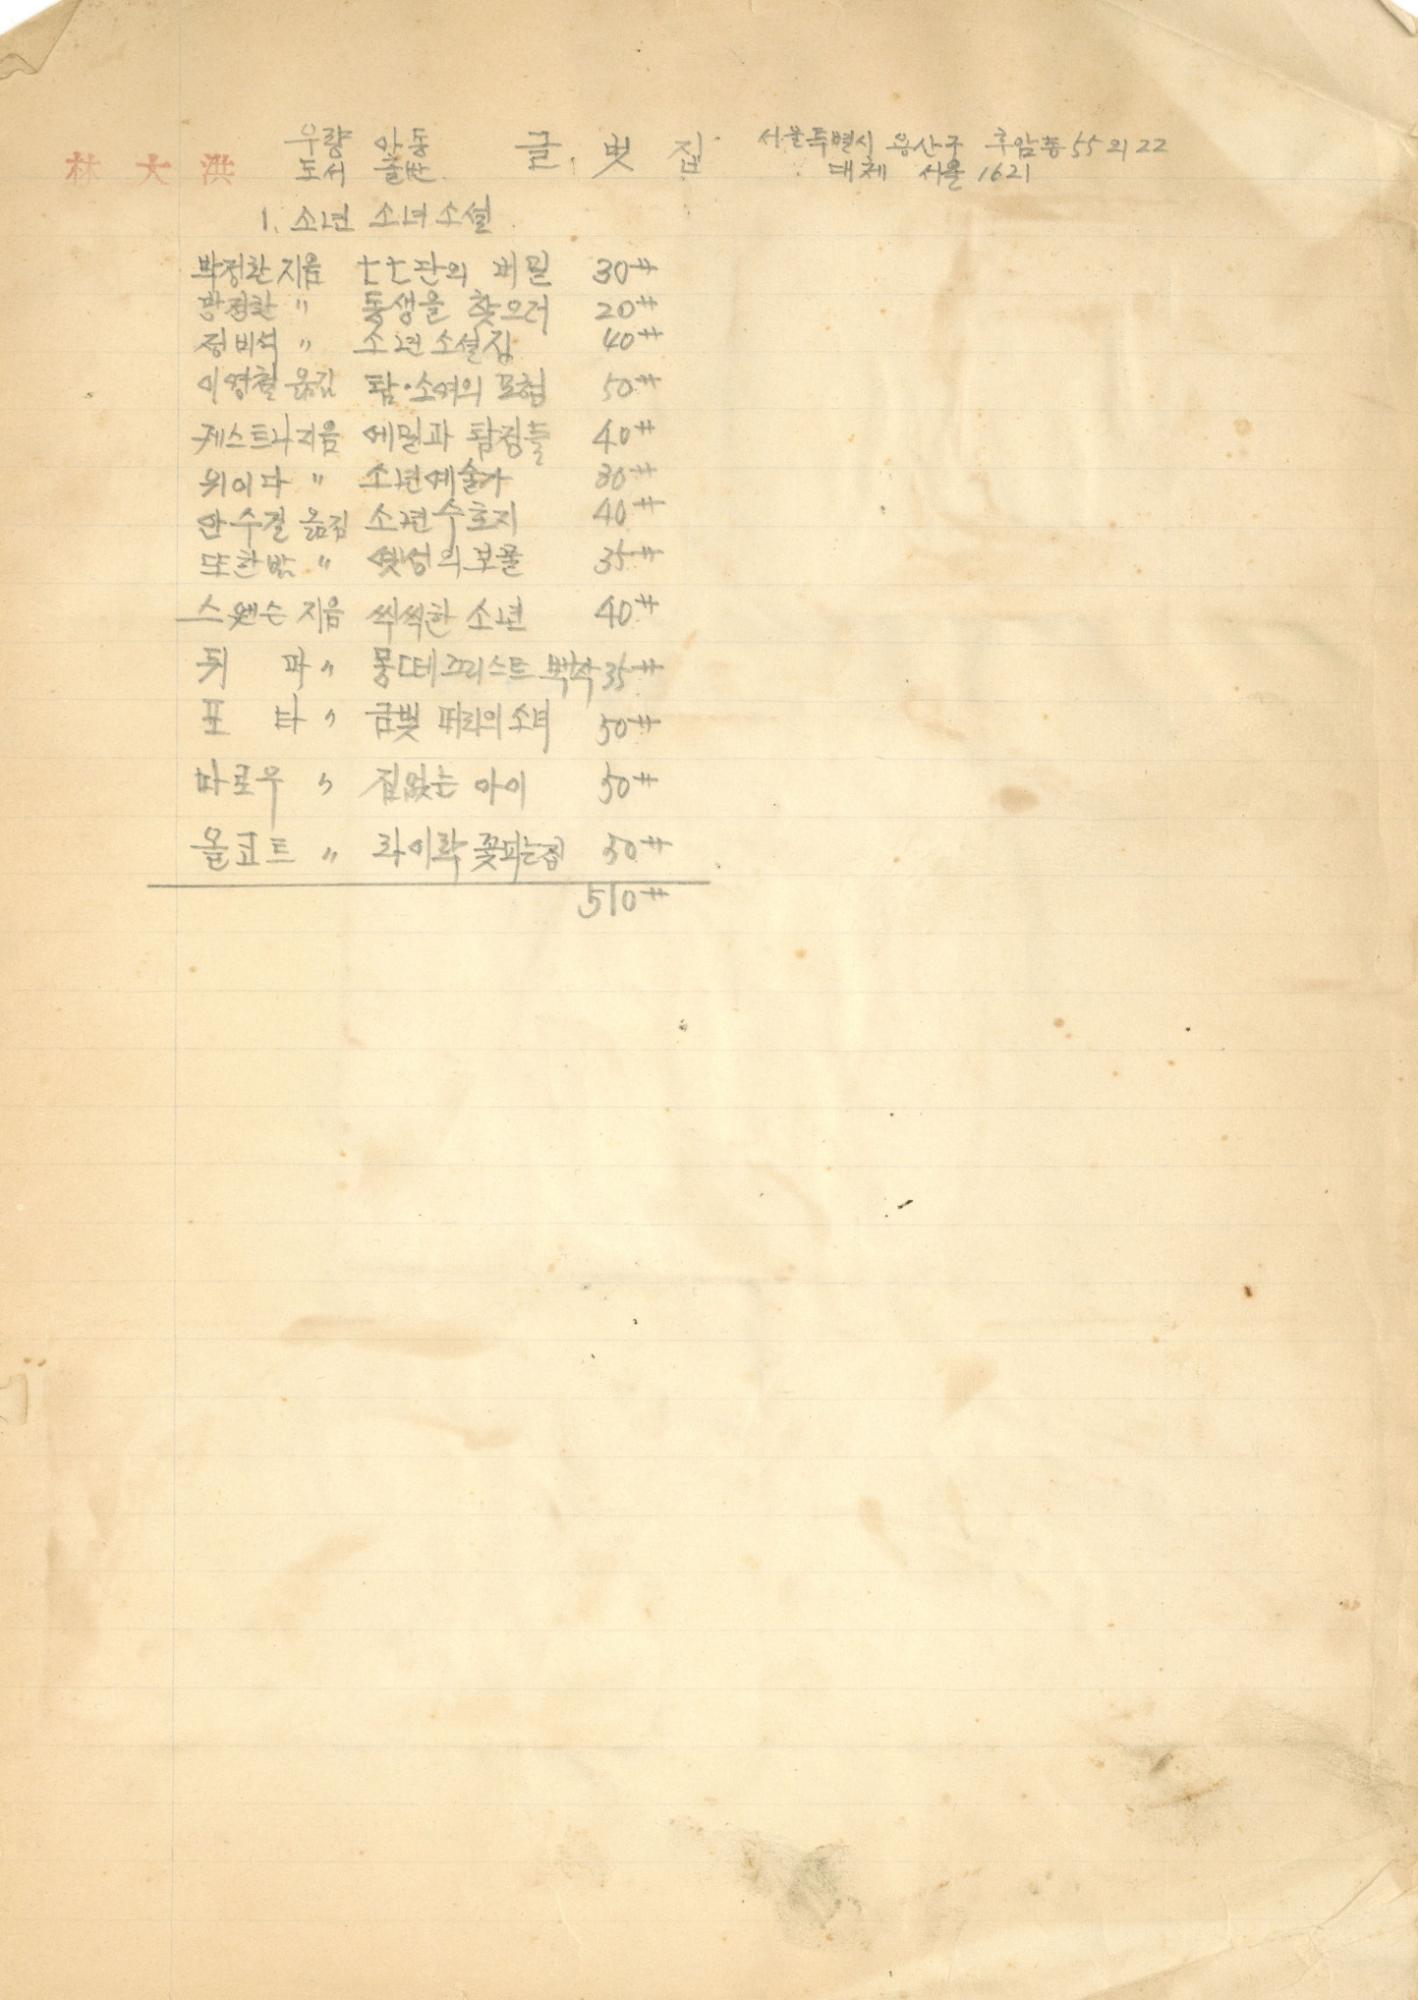 林大洪
우량 아동 글벗집 서울특별시 용산구 후암동 55의 22
도서 출판 대체 서울 1621
1. 소년 소녀소설
방정환 지음 七七단의 비밀 30#
방정환 〃 동생을 찾으러 20#
정비석 〃 소년소설집 40#
이영철 옮김 톰·소여의 모험 50#
케스트나 지음 에밀과 탐정들 40#
위이다 〃 소년예술가 30#
안수길 옮김 소년수호지 40#
또한밖 〃 옛성의보물 35#
스웬슨 지음 씩씩한 소년 40#
뒤 마 〃 몽떼그리스트 백작 35#
포 타 〃 금빛 머리의소녀 50#
마로우 〃 집없는 아이 50#
올코트 〃 라이락 꽃피는집 50#
510#